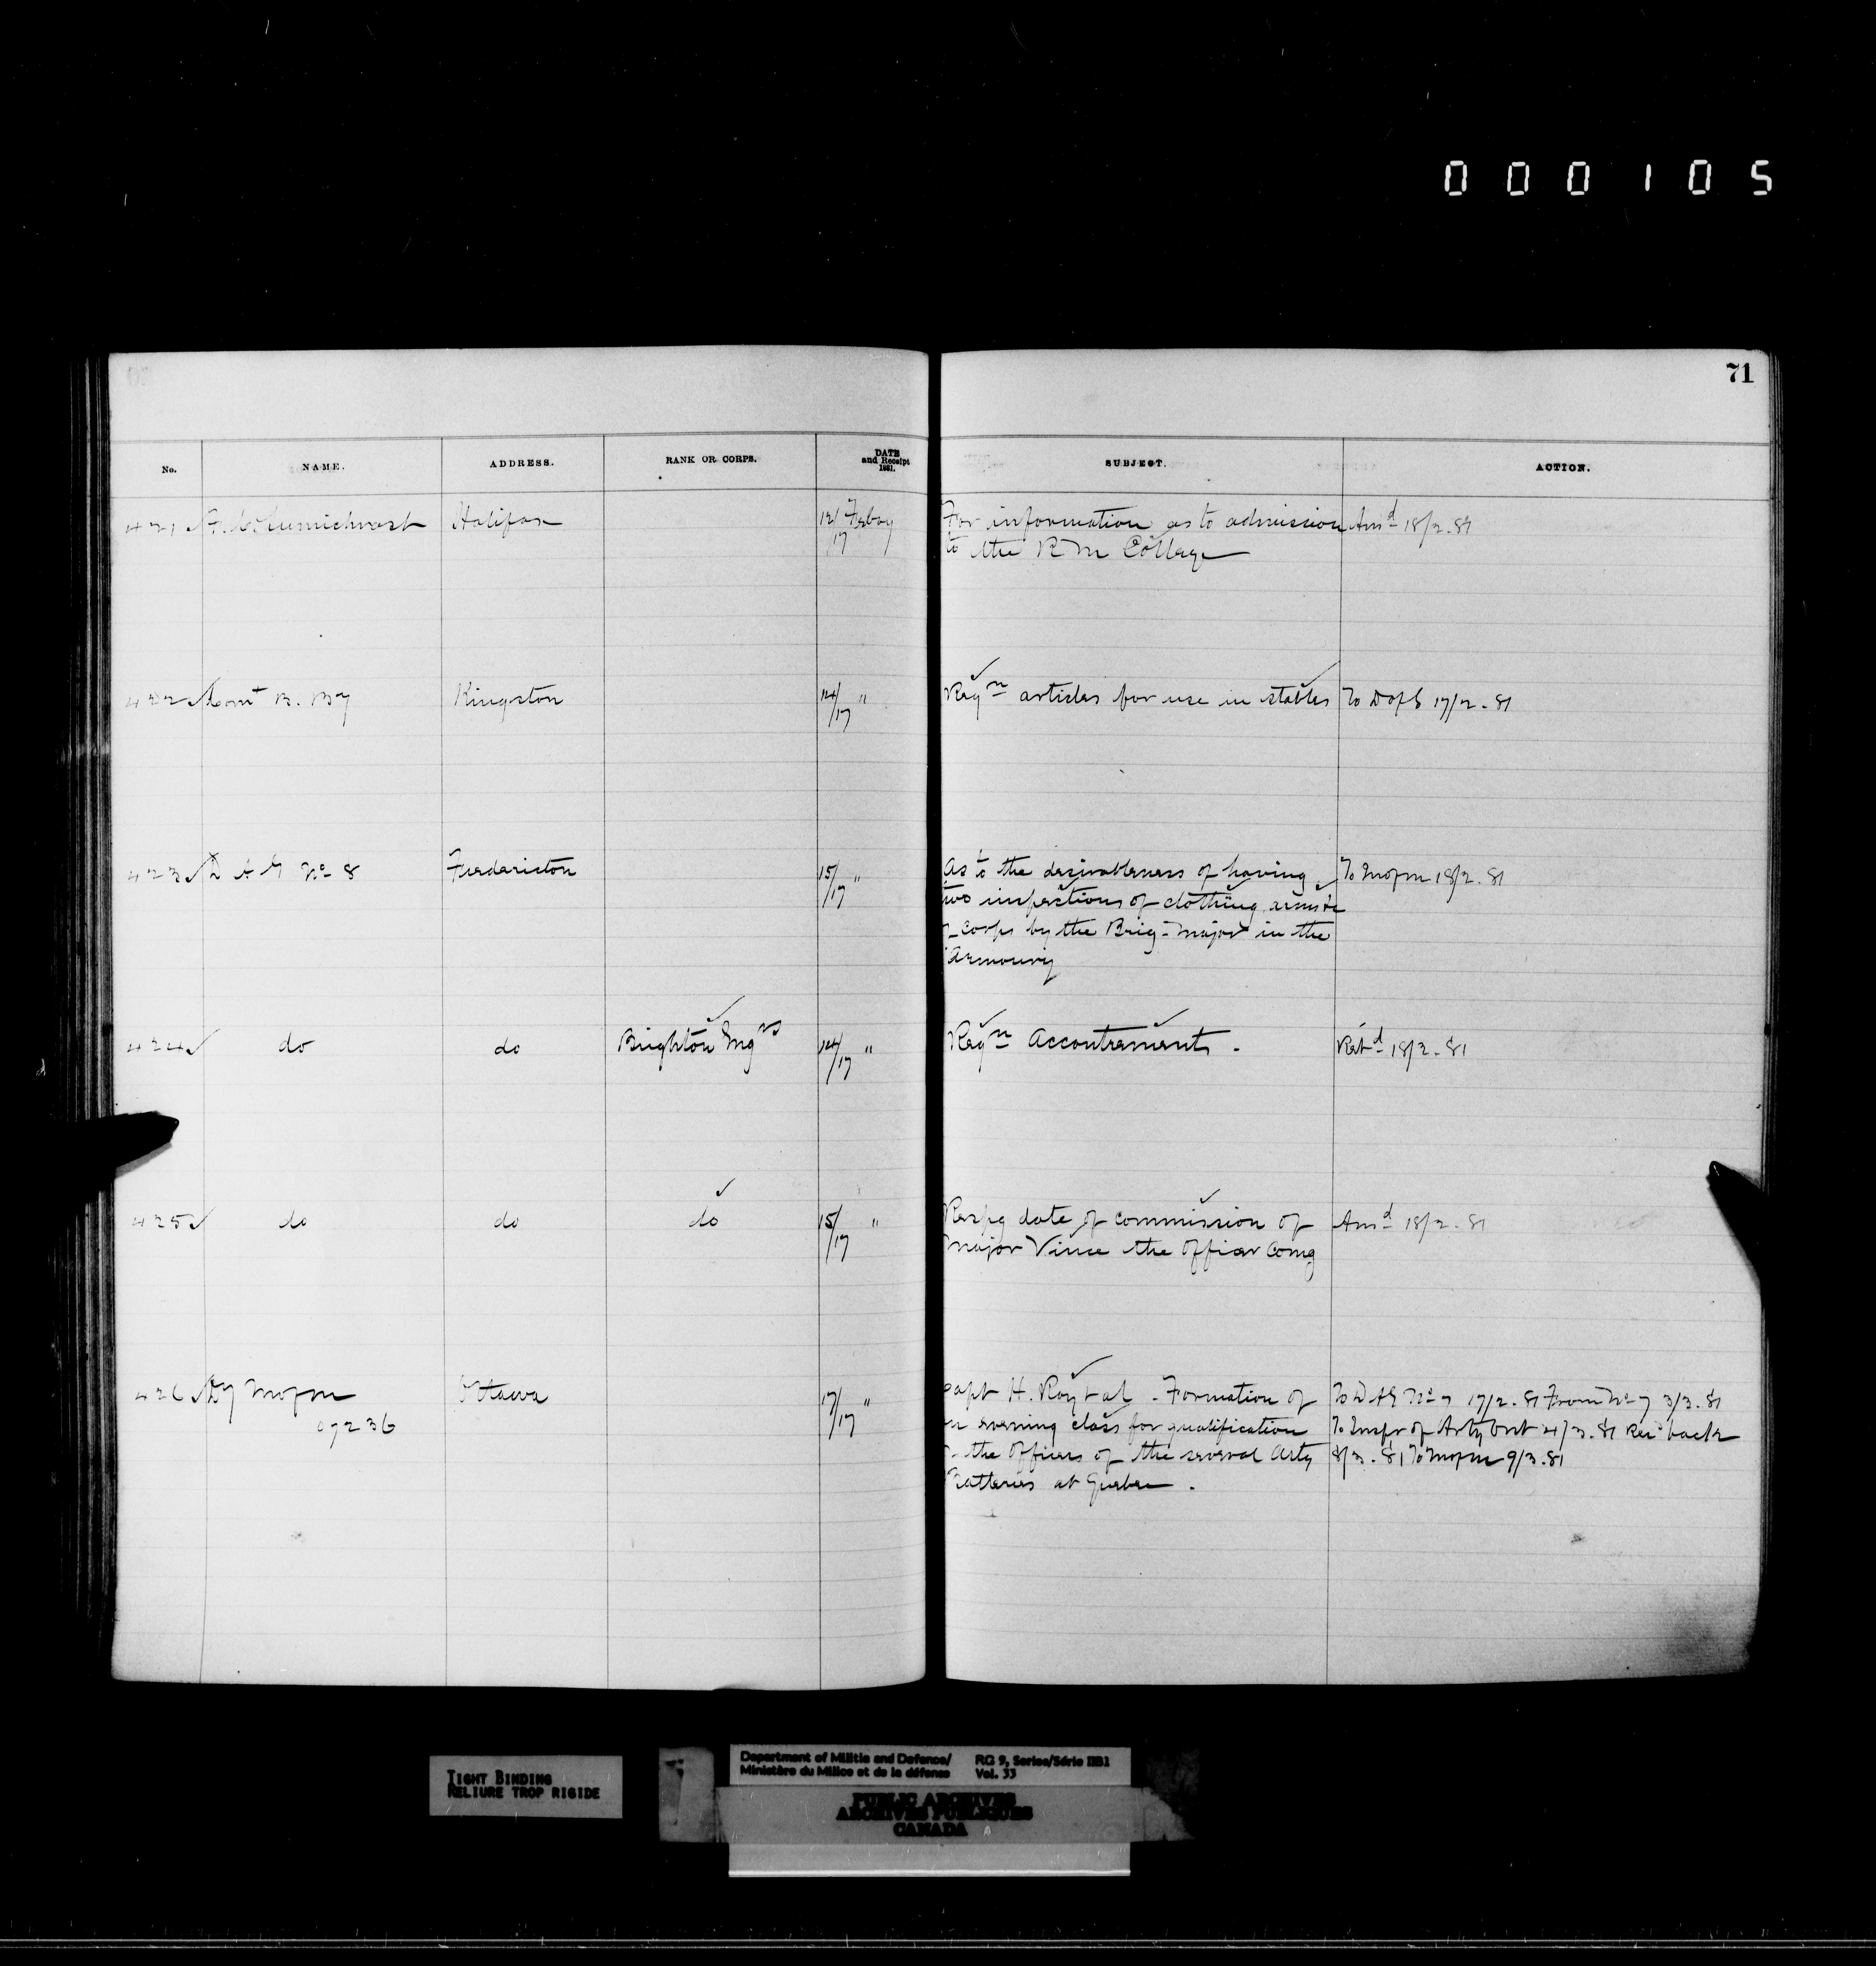 000105
71
No. NAME. ADDRESS. RANK OR CORPS. DATE and Receipt 1881. SUBJECT. ACTION.
421 Halifax 12/17 Feby For information as to admission Ansd 18/2.81
to the R M College
422 Comt B. By Kingston 14/17 " Reqn articles for use in stables To D of S 17/2.81
423 D A G No 8 Fredericton 15/17 " As to the desirableness of having To M of M 18/2.81
two inspections of clothing, arms &c
corps by the Brig-Major in the
Armoury
424 do do Brighton Engrs 14/17 " Reqn Accoutrements. Retd 18/2.81
425 do do do 15/17 " Respg date of commission of Ansd 18/2.81
Major Vince the Officer Comg
426 Dy M of M Ottawa 17/17 " Capt H. Roy et al. Formation of To D A G No 7 17/2.81 From No 7 3/3.81
07236 evening class for qualification To Inspr of Arty 4/3.81 Recd back
the Officers of the several Arty 8/3.81 To M of M 9/3.81
Batteries at Quebec.
TIGHT BINDING
RELIURE TROP RIGIDE
Department of Militia and Defence/ RG 9, Series/Série IIB1
Ministère du Milice et de la défense Vol. 33
PUBLIC ARCHIVES
ARCHIVES PUBLIQUES
CANADA